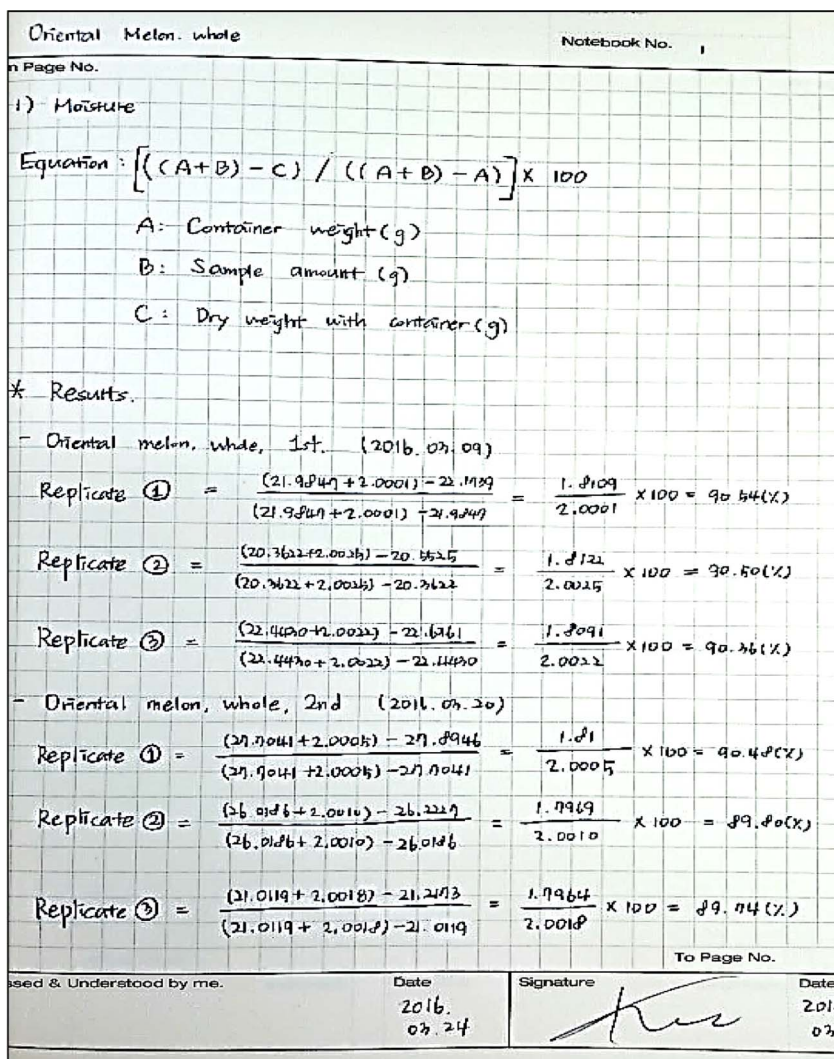 Oriental Melon. whole
Notebook No. 1
n Page No.
1) Moisture
Equation : [((A+B) - C) / ((A+B) - A)] x 100
A: Container weight (g)
B: Sample amount (g)
C: Dry weight with container (g)
* Results.
- Oriental melon, whole, 1st. (2016. 03. 09)
Replicate ① = (21.9847 + 2.0001) - 22.1739 / (21.9847 + 2.0001) - 21.9847 = 1.8109 / 2.0001 x 100 = 90.54 (%)
Replicate ② = (20.3622 + 2.0025) - 20.5525 / (20.3622 + 2.0025) - 20.3622 = 1.8122 / 2.0025 x 100 = 90.50 (%)
Replicate ③ = (22.4430 + 2.0022) - 22.6361 / (22.4430 + 2.0022) - 22.4430 = 1.8091 / 2.0022 x 100 = 90.36 (%)
- Oriental melon, whole, 2nd (2016. 03. 20)
Replicate ① = (27.7041 + 2.0005) - 27.8946 / (27.7041 + 2.0005) - 27.7041 = 1.81 / 2.0005 x 100 = 90.48 (%)
Replicate ② = (26.0186 + 2.0010) - 26.2227 / (26.0186 + 2.0010) - 26.0186 = 1.7969 / 2.0010 x 100 = 89.80 (%)
Replicate ③ = (21.0119 + 2.0018) - 21.2173 / (21.0119 + 2.0018) - 21.0119 = 1.7964 / 2.0018 x 100 = 89.74 (%)
To Page No.
ssed & Understood by me.
Date
Signature
Date
2016.
03.24
201
03